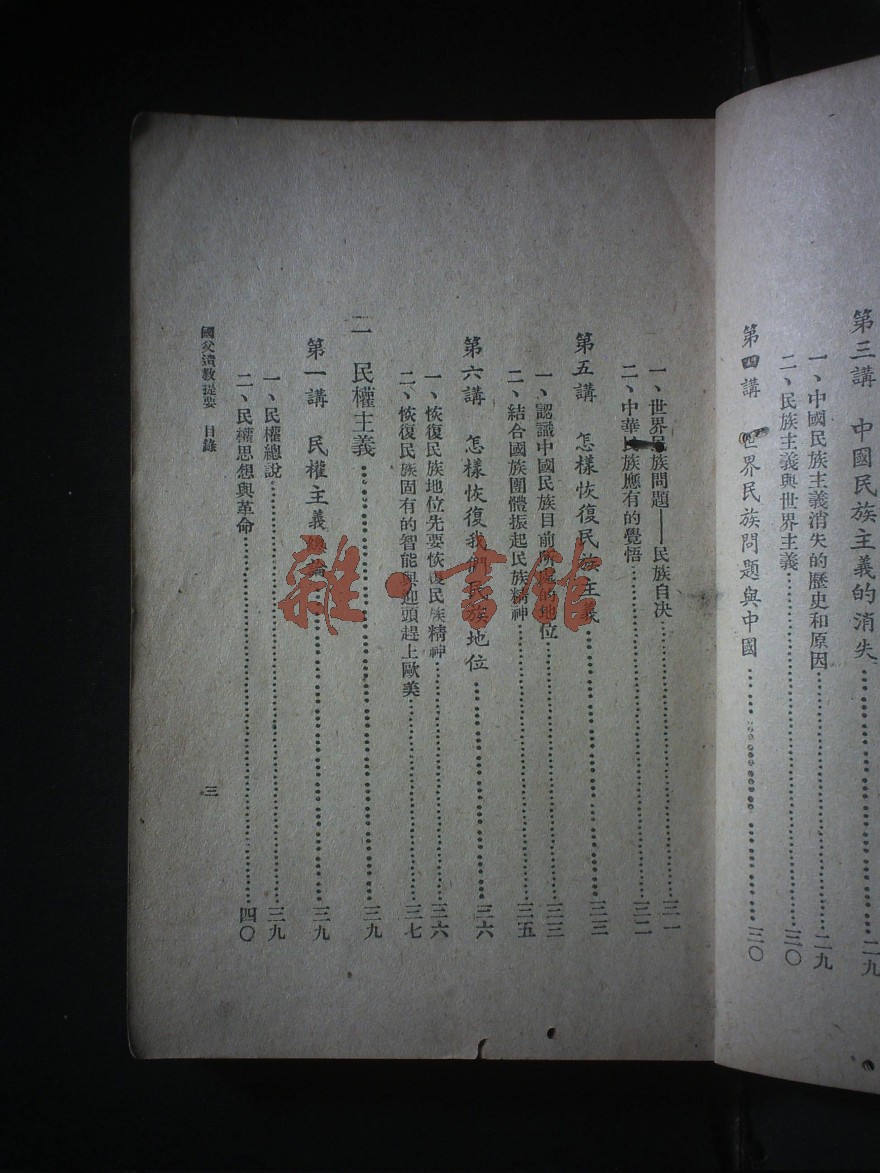 第三講　中國民族主義的消失……二九
一、中國民族主義消失的歷史和原因……二九
二、民族主義與世界主義……三〇
第四講　世界民族問題與中國……三〇
一、世界民族問題——民族自決……三一
二、中華民族應有的覺悟……三二
第五講　怎樣恢復民族主義……三三
一、認識中國民族目前所處的地位……三三
二、結合國族團體振起民族精神……三五
第六講　怎樣恢復我們民族地位……三六
一、恢復民族地位先要恢復民族精神……三六
二、恢復民族固有的智能與迎頭趕上歐美……三七
二　民權主義……三九
第一講　民權主義總論……三九
一、民權總說……三九
二、民權思想與革命……四〇
國父遺教提要　目錄
三
雜·書館